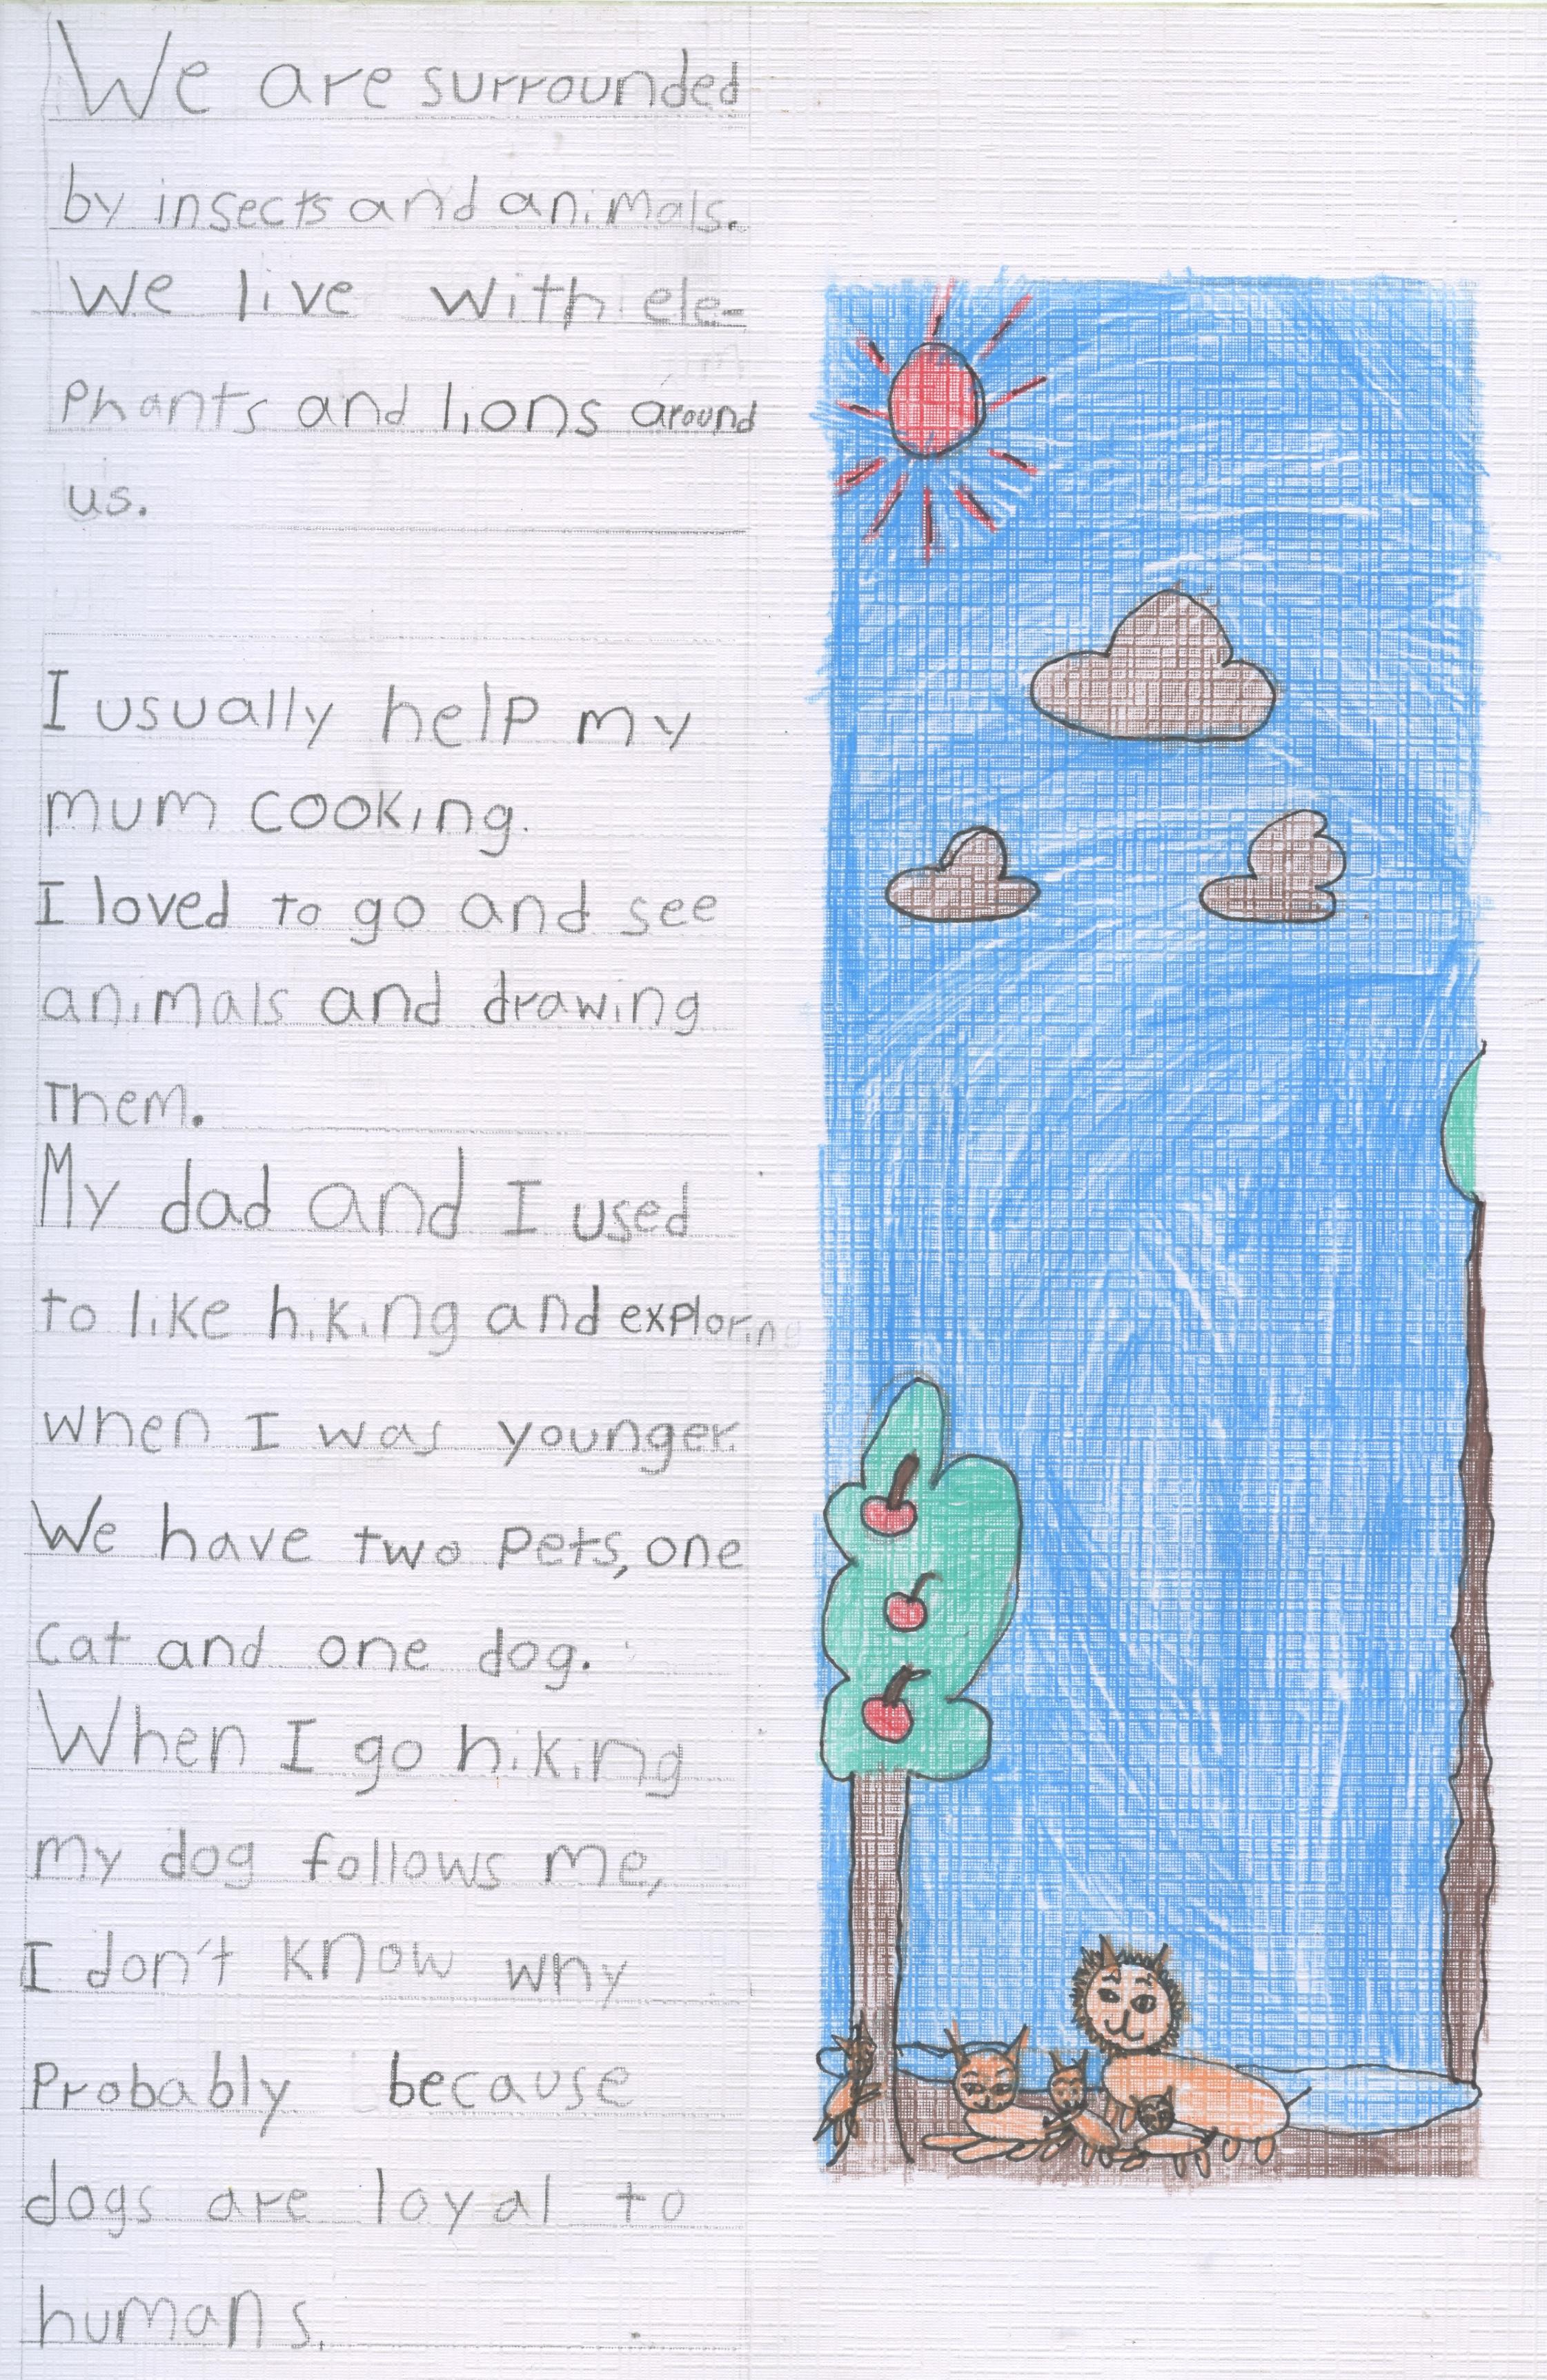 We are surrounded
by insects and animals.
We live with ele-
phants and lions around
us.
I usually help my
mum cooking.
I loved to go and see
animals and drawing
them.
My dad and I used
to like hiking and exploring
when I was younger.
We have two pets, one
cat and one dog.
When I go hiking
my dog follows me,
I don't know why
Probably because
dogs are loyal to
humans.